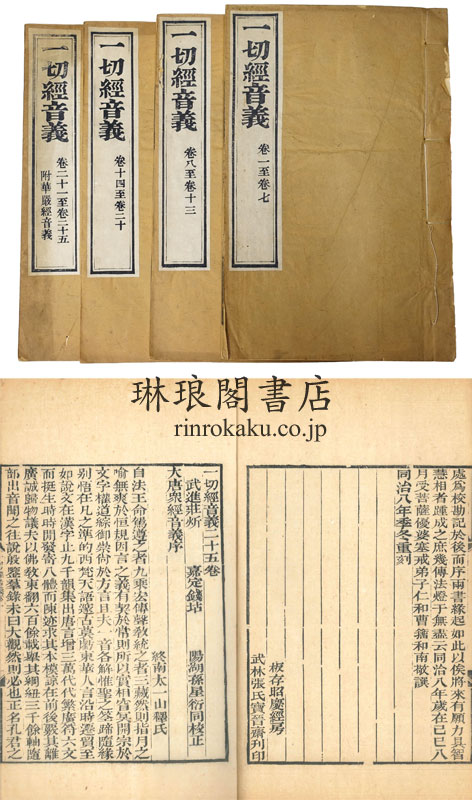 一切經音義
卷一至卷七
一切經音義
卷八至卷十三
一切經音義
卷十四至卷二十
一切經音義
卷二十一至卷二十五
附華嚴經音義
琳琅閣書店
rinrokaku.co.jp
處爲校勘記於後而序兩書緣起如此以俟將來有願力具智
慧相者踵成之庶幾傳法燈于無盡云同治八年歲在己巳八
月受菩薩優婆塞戒弟子仁和曹籀和南敬譔
同治八年季冬重刻
板存昭慶經房
武林張氏寶晉齋刊印
一切經音義二十五卷
武進莊炘 嘉定錢坫 陽湖孫星衍同校正
大唐衆經音義序
終南太一山釋氏
自法王命駕導之者九乘宏傳聲敎統之者三藏然則指月之
喻無爽於恒規因言之義有契於常則所以實相冥開宗於
文字權道綜御崇尙於方言且夫一音各解惟聖之筌蹄隨緣
別悟在凡之準的西梵天語邃古莫虧東華人言沿時遷貿至
如說文在漢字止九千韻集出唐言增三萬代代繁廣符六文
而挺生時時開發寄八體而陳迹求其本模諒在前後覈其離
廣誠歸物議夫以佛敎東翻六百餘載舉其綱紐三千餘軸隨
部出音聞之往說殷鑒羣錄未曰大觀然則必也正名孔君之